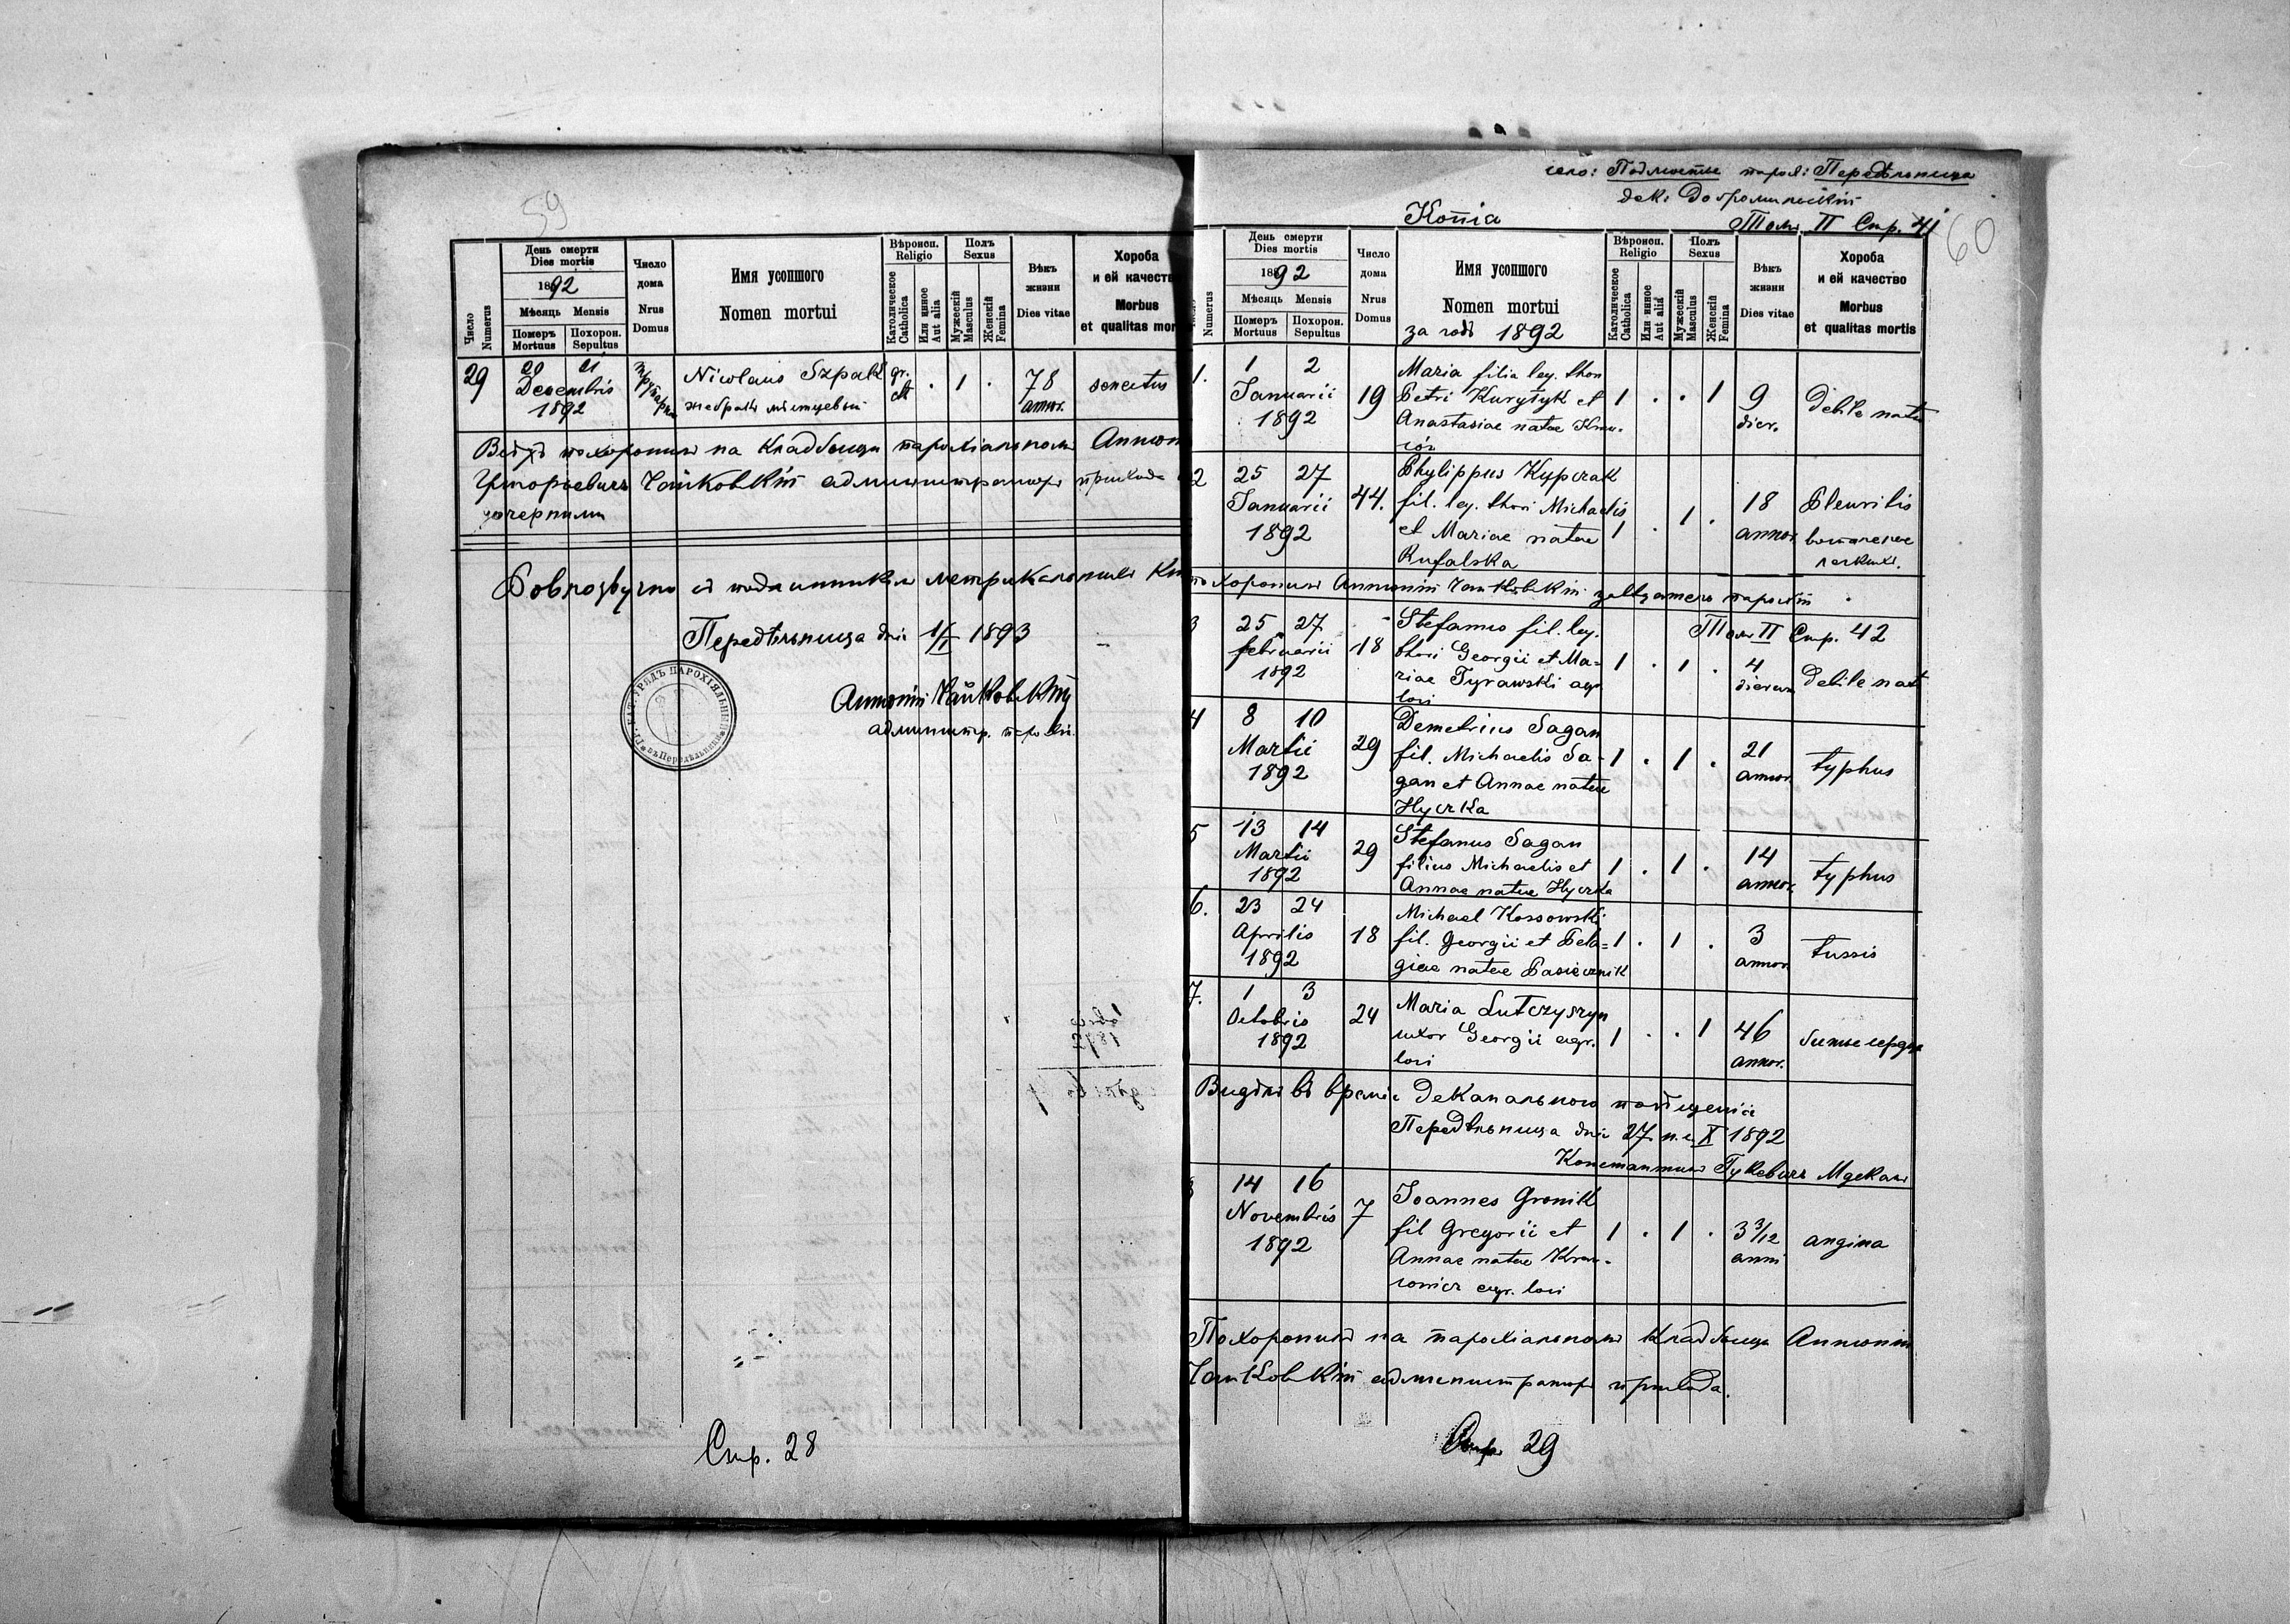 59
День смерти
Dies mortis
1892
Мѣсяць Mensis
Померъ Mortuus
Похорон. Sepultus
Число Numerus
Число дома
Nrus Domus
Имя усопшого
Nomen mortui
Вѣроисп. Religio
Католическое Catholica
Или инное Aut alia
Полъ Sexus
Мужескій Masculus
Женскій Femina
Вѣкъ жизни
Dies vitae
Хороба
и ей качество
Morbus
et qualitas mor
29
20 21
Decembris
1892
Nicolaus Szpak
gr. ct.
. 1 .
78
annor.
похоронилъ на кладбищи парохіальномъ
Чайковскій администраторъ прихода
Передѣльница дня 1/I 1893
ГР. КАТ. УРЯДЪ ПАРОХІЯЛЬНЫЙ
въ Передѣльници
Антоній Чайковскій
администр. парохіи.
Стр. 28
село: Подмостье парох: Передѣльница
дек: Добромильскій
Копія
Томъ II Стр. 41
60
День смерти
Dies mortis
1892
Мѣсяць Mensis
Померъ Mortuus
Похорон. Sepultus
Numerus
Число дома
Nrus Domus
Имя усопшого
Nomen mortui
за годъ 1892
Вѣроисп. Religio
Католическое Catholica
Или инное Aut alia
Полъ Sexus
Мужескій Masculus
Женскій Femina
Вѣкъ жизни
Dies vitae
Хороба
и ей качество
Morbus
et qualitas mortis
1.
1 2
Januarii
1892
19
Maria filia leg. thori
Petri Kurytyk et
Anastasiae natae
1 . . 1
9
dier.
debile nata
2
25 27
Januarii
1892
44.
Phylippus Kypczak
fil. leg. thori Michaelis
et Mariae natae
Rufalska
1 . 1 .
18
annor.
Pleuritis
похоронилъ Антоній Чайковскій завѣдатель парохіи
Томъ II Стр. 42
3
25 27
februarii
1892
18
Stefanus fil. leg.
thori Georgii et Ma-
riae Tyrawski agr.
1 . 1 .
4
dierum
debile nat
4
8 10
Martii
1892
29
Demetrius Sagan
fil. Michaelis Sa-
gan et Annae natae
Hyczka
1 . 1 .
21
annor.
typhus
5
13 14
Martii
1892
29
Stefanus Sagan
filius Michaelis et
Annae natae Hyczka
1 . 1 .
14
annor.
typhus
6.
23 24
Aprilis
1892
18
Michael Kossowski
fil. Georgii et Pela=
giae natae Pasiecznik
1 . 1 .
3
annor.
tussis
7.
1 3
Octobris
1892
24
Maria Lutczyszyn
uxor Georgii agr.
1 . . 1
46
annor.
Видѣлъ въ время деканального посѣщенія
Передѣльница дня 27. н. с. X 1892
14 16
Novembris
1892
7
Joannes Gronik
fil Gregorii et
Annae natae
1 . 1 .
3 3/12
anni
angina
Похоронилъ на парохіальномъ кладбищи Антоній
Чайковскій администраторъ прихода.
Стр. 29